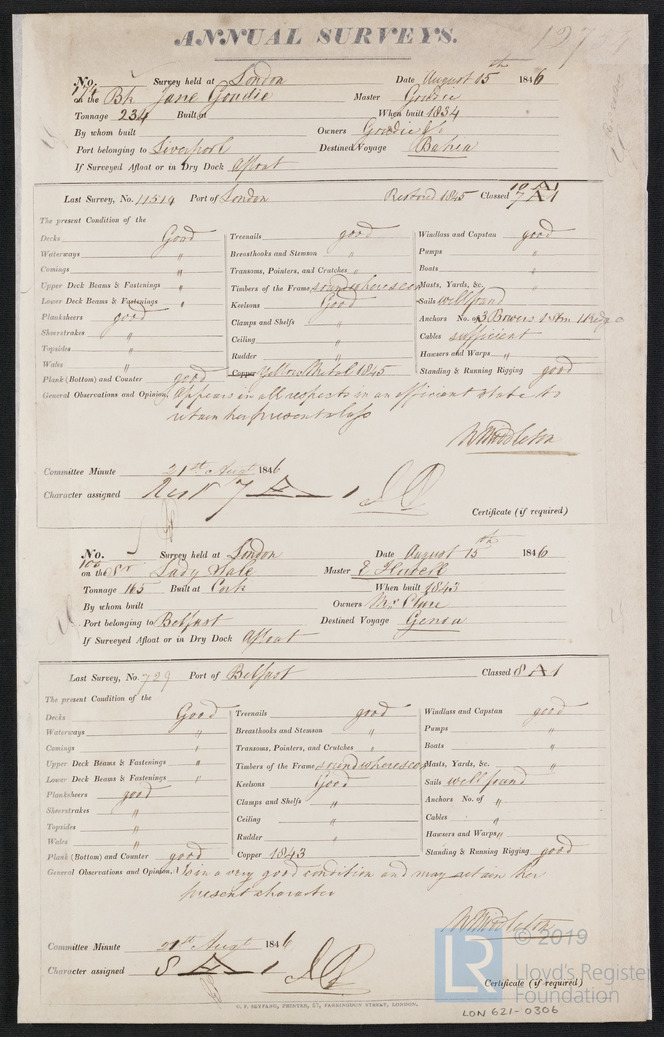 ANNUAL SURVEYS.
No. Survey held at London Date August 15th 1846
on the Bk Jane Goudie Master Goudie
Tonnage 234 Built at When built 1834
By whom built Owners Goudie &
Port belonging to Liverpool Destined Voyage Bahia
If Surveyed Afloat or in Dry Dock Afloat
Last Survey, No. 11514 Port of London Restored 1845 Classed 10 A1 7 A1
The present Condition of the
Decks Good Treenails good Windlass and Capstan good
Waterways " Breasthooks and Stemson " Pumps "
Comings " Transoms, Pointers, and Crutches " Boats "
Upper Deck Beams & Fastenings " Timbers of the Frame sound where seen Masts, Yards, &c. "
Lower Deck Beams & Fastenings " Keelsons Good Sails well found
Planksheers good Clamps and Shelfs " Anchors No. of 3 Bowers 1 Stm 1 Kedge
Sheerstrakes " Ceiling " Cables sufficient
Topsides " Rudder " Hawsers and Warps "
Wales " Copper Yellow Metal 1845 Standing & Running Rigging good
Plank (Bottom) and Counter good
General Observations and Opinion, Appears in all respects in an efficient state to
retain her present class
W Middleton
Committee Minute 21st Augt 1846
Character assigned Rest 7 A 1
Certificate (if required)
No. Survey held at London Date August 15th 1846
on the Sr Lady Sale Master E Howell
Tonnage 165 Built at Cork When built 1843
By whom built Owners McClure
Port belonging to Belfast Destined Voyage Genoa
If Surveyed Afloat or in Dry Dock Afloat
Last Survey, No. 729 Port of Belfast Classed 8 A 1
The present Condition of the
Decks Good Treenails good Windlass and Capstan good
Waterways " Breasthooks and Stemson " Pumps "
Comings " Transoms, Pointers, and Crutches " Boats "
Upper Deck Beams & Fastenings " Timbers of the Frame sound where seen Masts, Yards, &c. "
Lower Deck Beams & Fastenings " Keelsons Good Sails well found
Planksheers good Clamps and Shelfs " Anchors No. of "
Sheerstrakes " Ceiling " Cables "
Topsides " Rudder " Hawsers and Warps "
Wales " Copper 1843 Standing & Running Rigging good
Plank (Bottom) and Counter good
General Observations and Opinion, Is in a very good condition and may retain her
present character
W Middleton
Committee Minute 21st Augt 1846
Character assigned 8 A 1
Certificate (if required)
LR © 2019
Lloyd's Register
Foundation
LON 621-0306